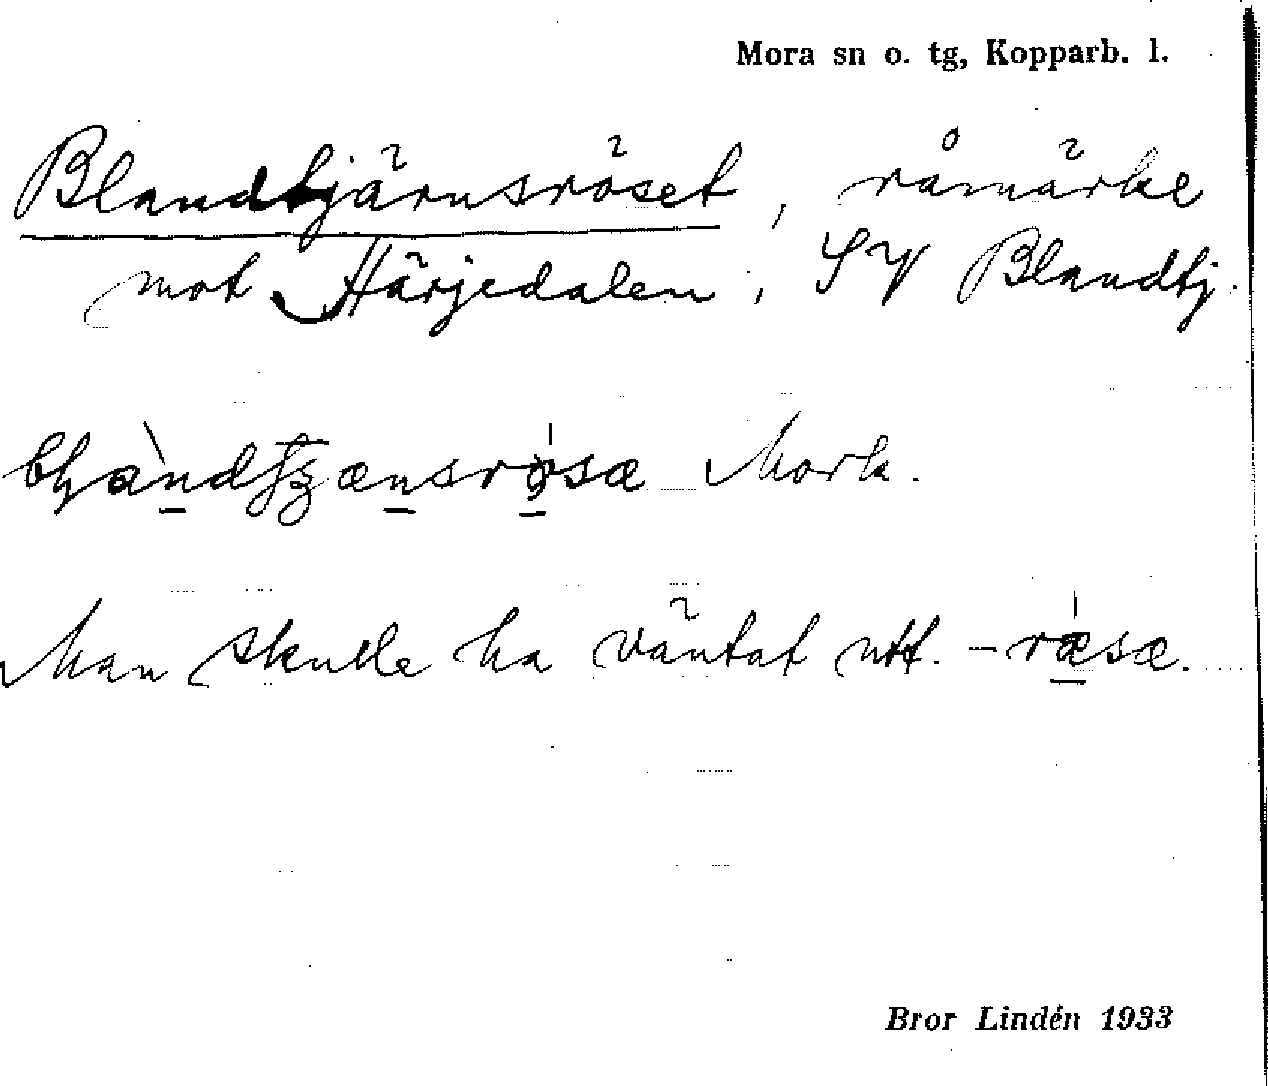 Mora sn o. tg, Kopparb. l.
Blandtjärnsröset, råmärke
mot Härjedalen, SV Blandtj.
Mork.
Man skulle ha väntat utt. -ræsæ.
Bror Lindén 1933